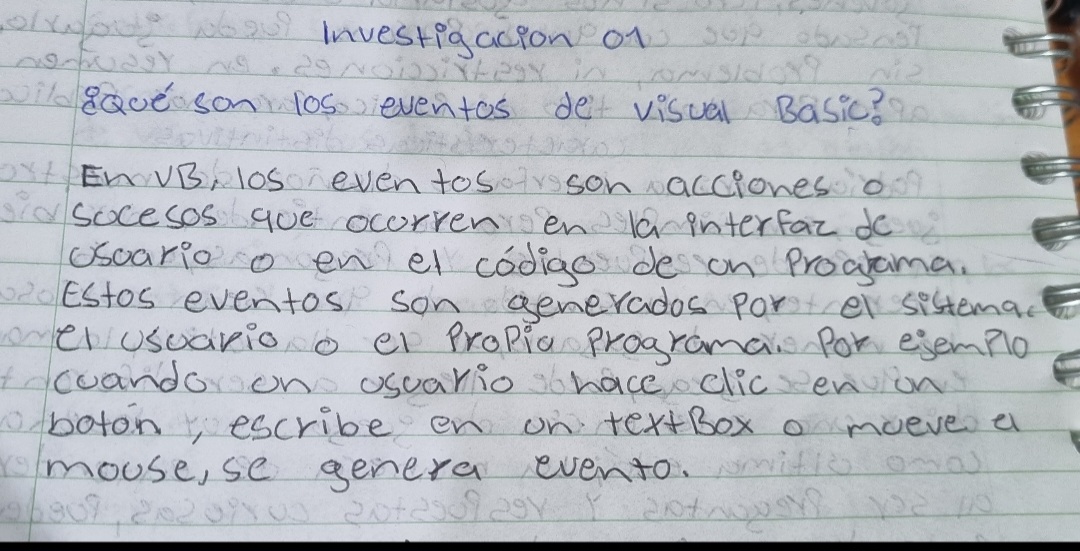 Investigacion 01
¿Qué son los eventos de visual Basic?
En VB, los eventos son acciones o
sucesos que ocurren en la interfaz de
usuario o en el código de un Programa.
Estos eventos son generados por el sistema,
el usuario o el Propio Programa. Por ejemplo
cuando un usuario hace clic en un
botón, escribe en un textBox o mueve el
mouse, se genera evento.